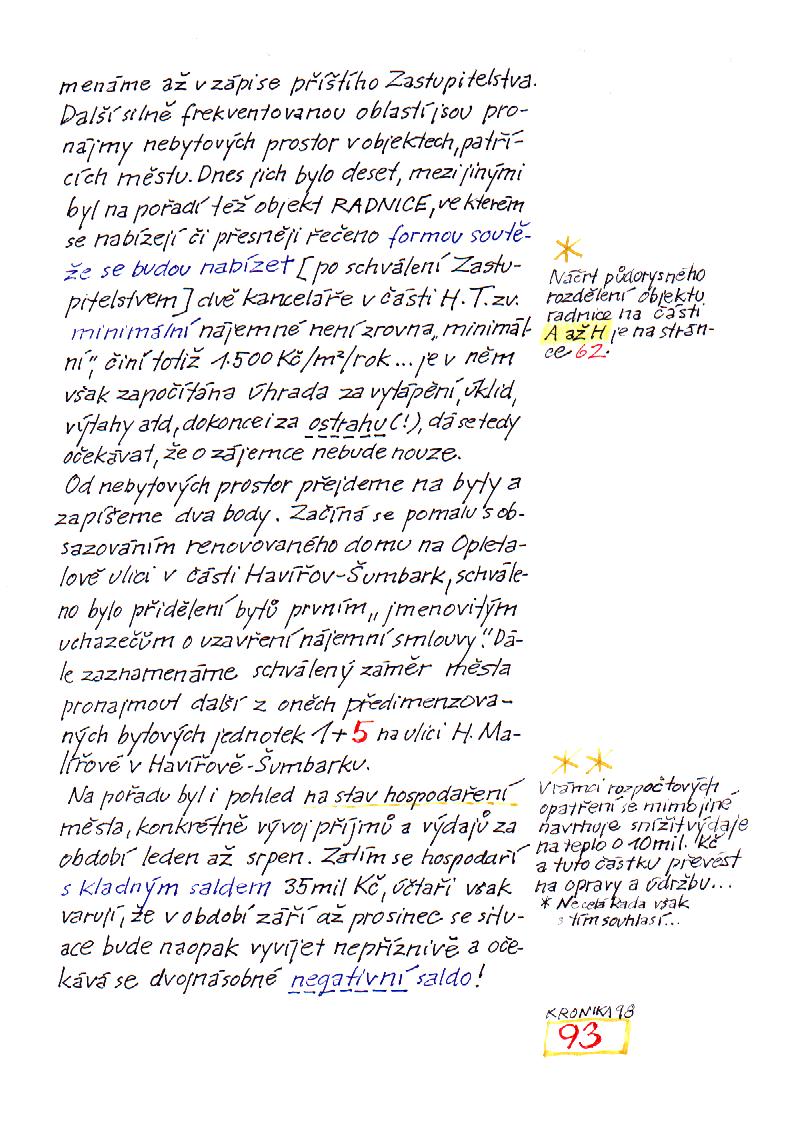 menáme až v zápise příštího Zastupitelstva.
Další silně frekventovanou oblastí jsou pro-
nájmy nebytových prostor v objektech, patří-
cích městu. Dnes jich bylo deset, mezi jinými
byl na pořadí též objekt RADNICE, ve kterém
se nabízejí či přesněji řečeno formou soutě-
že se budou nabízet [po schválení Zastu-
pitelstvem] dvě kanceláře v části H. T.zv.
minimální nájemné není zrovna „minimál-
ní“, činí totiž 1.500 Kč/m²/rok... je v něm
však započítána úhrada za vytápění, úklid,
výtahy atd, dokonce i za ostrahu (!), dá se tedy
očekávat, že o zájemce nebude nouze.
Od nebytových prostor přejdeme na byty a
zapíšeme dva body. Začíná se pomalu s ob-
sazováním renovovaného domu na Opleta-
lově ulici v části Havířov-Šumbark, schvále-
no bylo přidělení bytů prvním „jmenovitým
uchazečům o uzavření nájemní smlouvy“. Dá-
le zaznamenáme schválený záměr města
pronajmout další z oněch předimenzova-
ných bytových jednotek 1+5 na ulici H. Ma-
lířové v Havířově-Šumbarku.
Na pořadu byl i pohled na stav hospodaření
města, konkrétně vývoj příjmů a výdajů za
období leden až srpen. Zatím se hospodaří
s kladným saldem 35mil Kč, účtaři však
varují, že v období září až prosinec se situ-
ace bude naopak vyvíjet nepříznivě a oče-
kává se dvojnásobné negativní saldo!
*
Náčrt půdorysného
rozdělení objektu
radnice na části
A až H je na strán-
ce 62.
* *
V rámci rozpočtových
opatření se mimo jiné
navrhuje snížit výdaje
na teplo o 10mil. Kč
a tuto částku převést
na opravy a údržbu...
* Necelá Rada však
s tím souhlasí...
KRONIKA 98
93